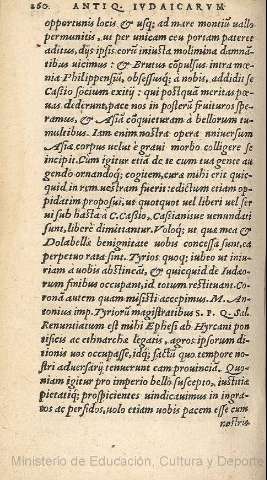 260. ANTIQ. IVDAICARVM
opportunis locis & usq; ad mare montiū uallo
permunitis, ut per unicam ceu portam pateret
aditus, dijs ipsis eorū iniusta molimina damnā-
tibus uicimus: & Brutus cōpulsus intra mœ-
nia Philippensiū, obsessusq; à nobis, addidit se
Cassio socium exitij: qui postquā meritas pœ-
nas dederunt, pace nos in posterū fruituros spe-
ramus, & Asiā cōquieturam à bellorum tu-
multibus. Iam enim nostra opera uniuersum
Asiæ corpus uelut è graui morbo colligere se
incipit. Cum igitur etiā de te cum tua gente au
gendo ornandoq; cogitem, curæ mihi erit quic-
quid in rem uestram fuerit: edictum etiam op-
pidatim proposui, ut quotquot uel liberi uel ser
ui sub hasta à C. Cassio, Cassianisue uenundati
sunt, liberè dimittantur. Voloq; ut quæ mea &
Dolabellæ benignitate uobis concessa sunt, ea
perpetuo rata sint. Tyrios quoq; iubeo ut iniu-
riam à uobis abstineāt, & quicquid de Iudæo-
rum finibus occupant, id totum restituant. Co-
ronā autem quam misisti accepimus. M. An-
tonius imp. Tyriorū magistratibus S. P. Q. Sal.
Renuntiatum est mihi Ephesi ab Hyrcani pon
tificis ac ethnarchæ legatis, agros ipsorum di-
tionis uos occupasse, idq; factū quo tempore no-
stri aduersarij tenuerunt eam prouinciā. Quo-
niam igitur pro imperio bello suscepto, iustitiæ
pietatiq; prospicientes uindicauimus in ingra-
tos ac perfidos, uolo etiam uobis pacem esse cum
nostris
Ministerio de Educación, Cultura y Deporte